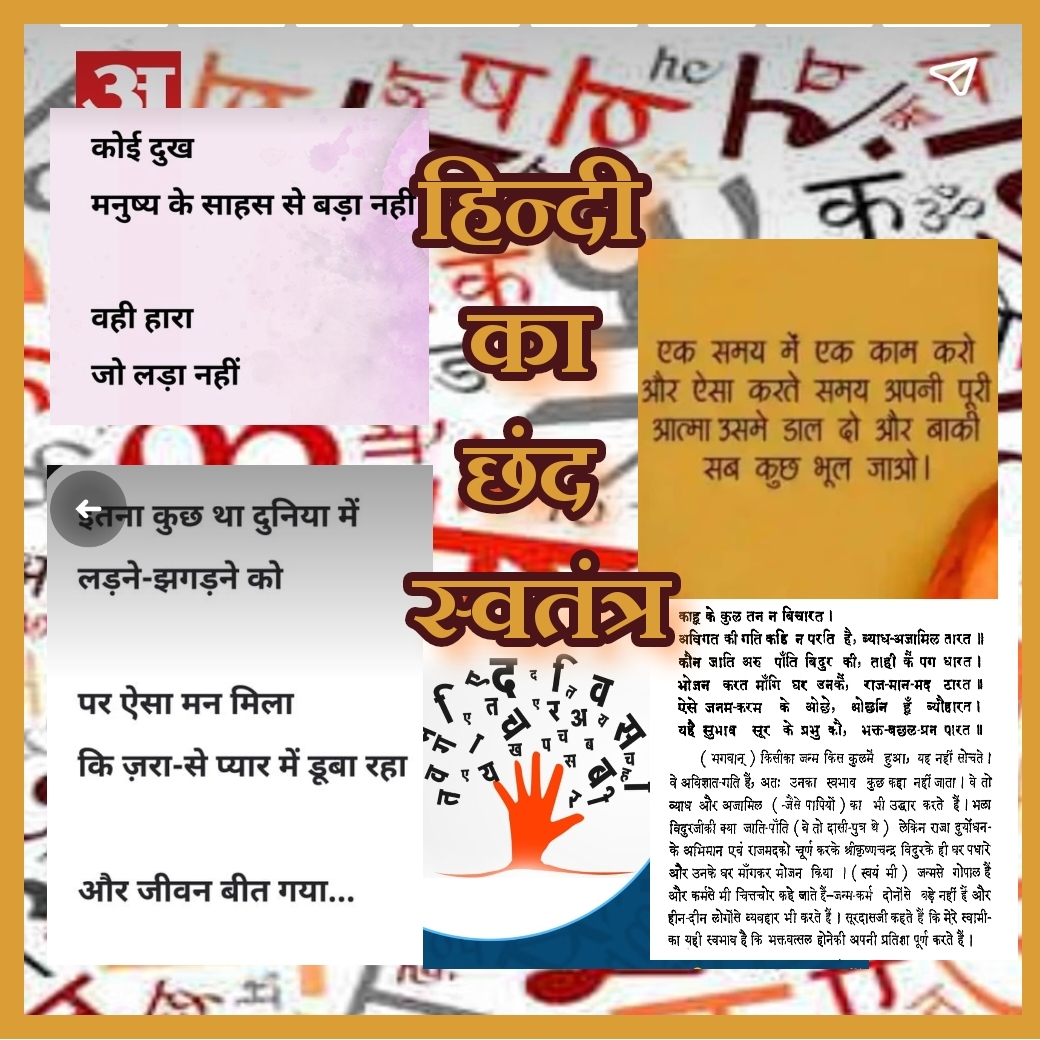 अ
कोई दुख
मनुष्य के साहस से बड़ा नही
वही हारा
जो लड़ा नहीं
हिन्दी
का
छंद
स्वतंत्र
एक समय में एक काम करो
और ऐसा करते समय अपनी पूरी
आत्मा उसमे डाल दो और बाकी
सब कुछ भूल जाओ।
इतना कुछ था दुनिया में
लड़ने-झगड़ने को
पर ऐसा मन मिला
कि ज़रा-से प्यार में डूबा रहा
और जीवन बीत गया...
काहू के कुल तन न बिचारत।
अबिगत की गति कहि न परति है, ब्याध-अजामिल तारत॥
कौन जाति अरु पाँति बिदुर की, ताही कैं पग धारत।
भोजन करत माँगि घर उनकैं, राज-मान-मद टारत॥
ऐसे जनम-करम के ओछे, ओछनि हूँ ब्यौहारत।
यहै सुभाव सूर के प्रभु कौ, भक्त-बछल-प्रन पारत॥
(भगवान्) किसीका जन्म किस कुलमें हुआ, यह नहीं सोचते।
वे अविज्ञात-गति हैं, अतः उनका स्वभाव कुछ कहा नहीं जाता। वे तो
व्याध और अजामिल (-जैसे पापियों) का भी उद्धार करते हैं। भला
विदुरजीकी क्या जाति-पाँति (वे तो दासी-पुत्र थे) लेकिन राजा दुर्योधन-
के अभिमान एवं राजमदको चूर्ण करके श्रीकृष्णचन्द्र विदुरके ही घर पधारे
और उनके घर माँगकर भोजन किया। (स्वयं भी) जन्मसे गोपाल हैं
और कर्मसे भी चित्तचोर कहे जाते हैं—जन्म-कर्म दोनोंसे बड़े नहीं हैं और
हीन-दीन लोगोंसे व्यवहार भी करते हैं। सूरदासजी कहते हैं कि मेरे स्वामी-
का यही स्वभाव है कि भक्तवत्सल होनेकी अपनी प्रतिज्ञा पूर्ण करते हैं।